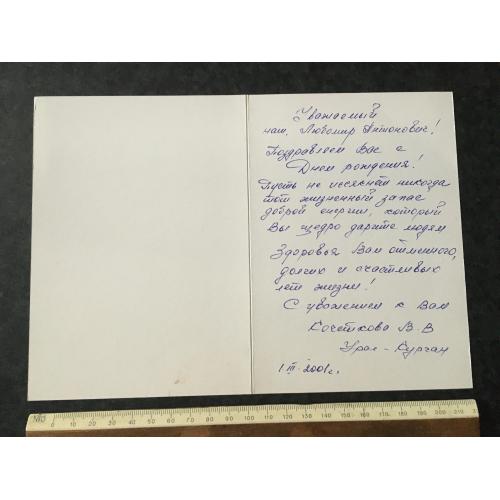 Уважаемый
наш, Любомир Антонович!
Поздравляем Вас с
Днем рождения!
Пусть не иссякнет никогда
тот жизненный запас
доброй энергии, который
Вы щедро дарите людям
Здоровья Вам отменного,
долгих и счастливых
лет жизни!
С уважением к Вам
Кочеткова В. В
Урал - Курган
1 III. 2001 г.
0 10 20 30 40 50 60 70 80 90 100 110 120 130 140 150 160 170 180 190 200 210